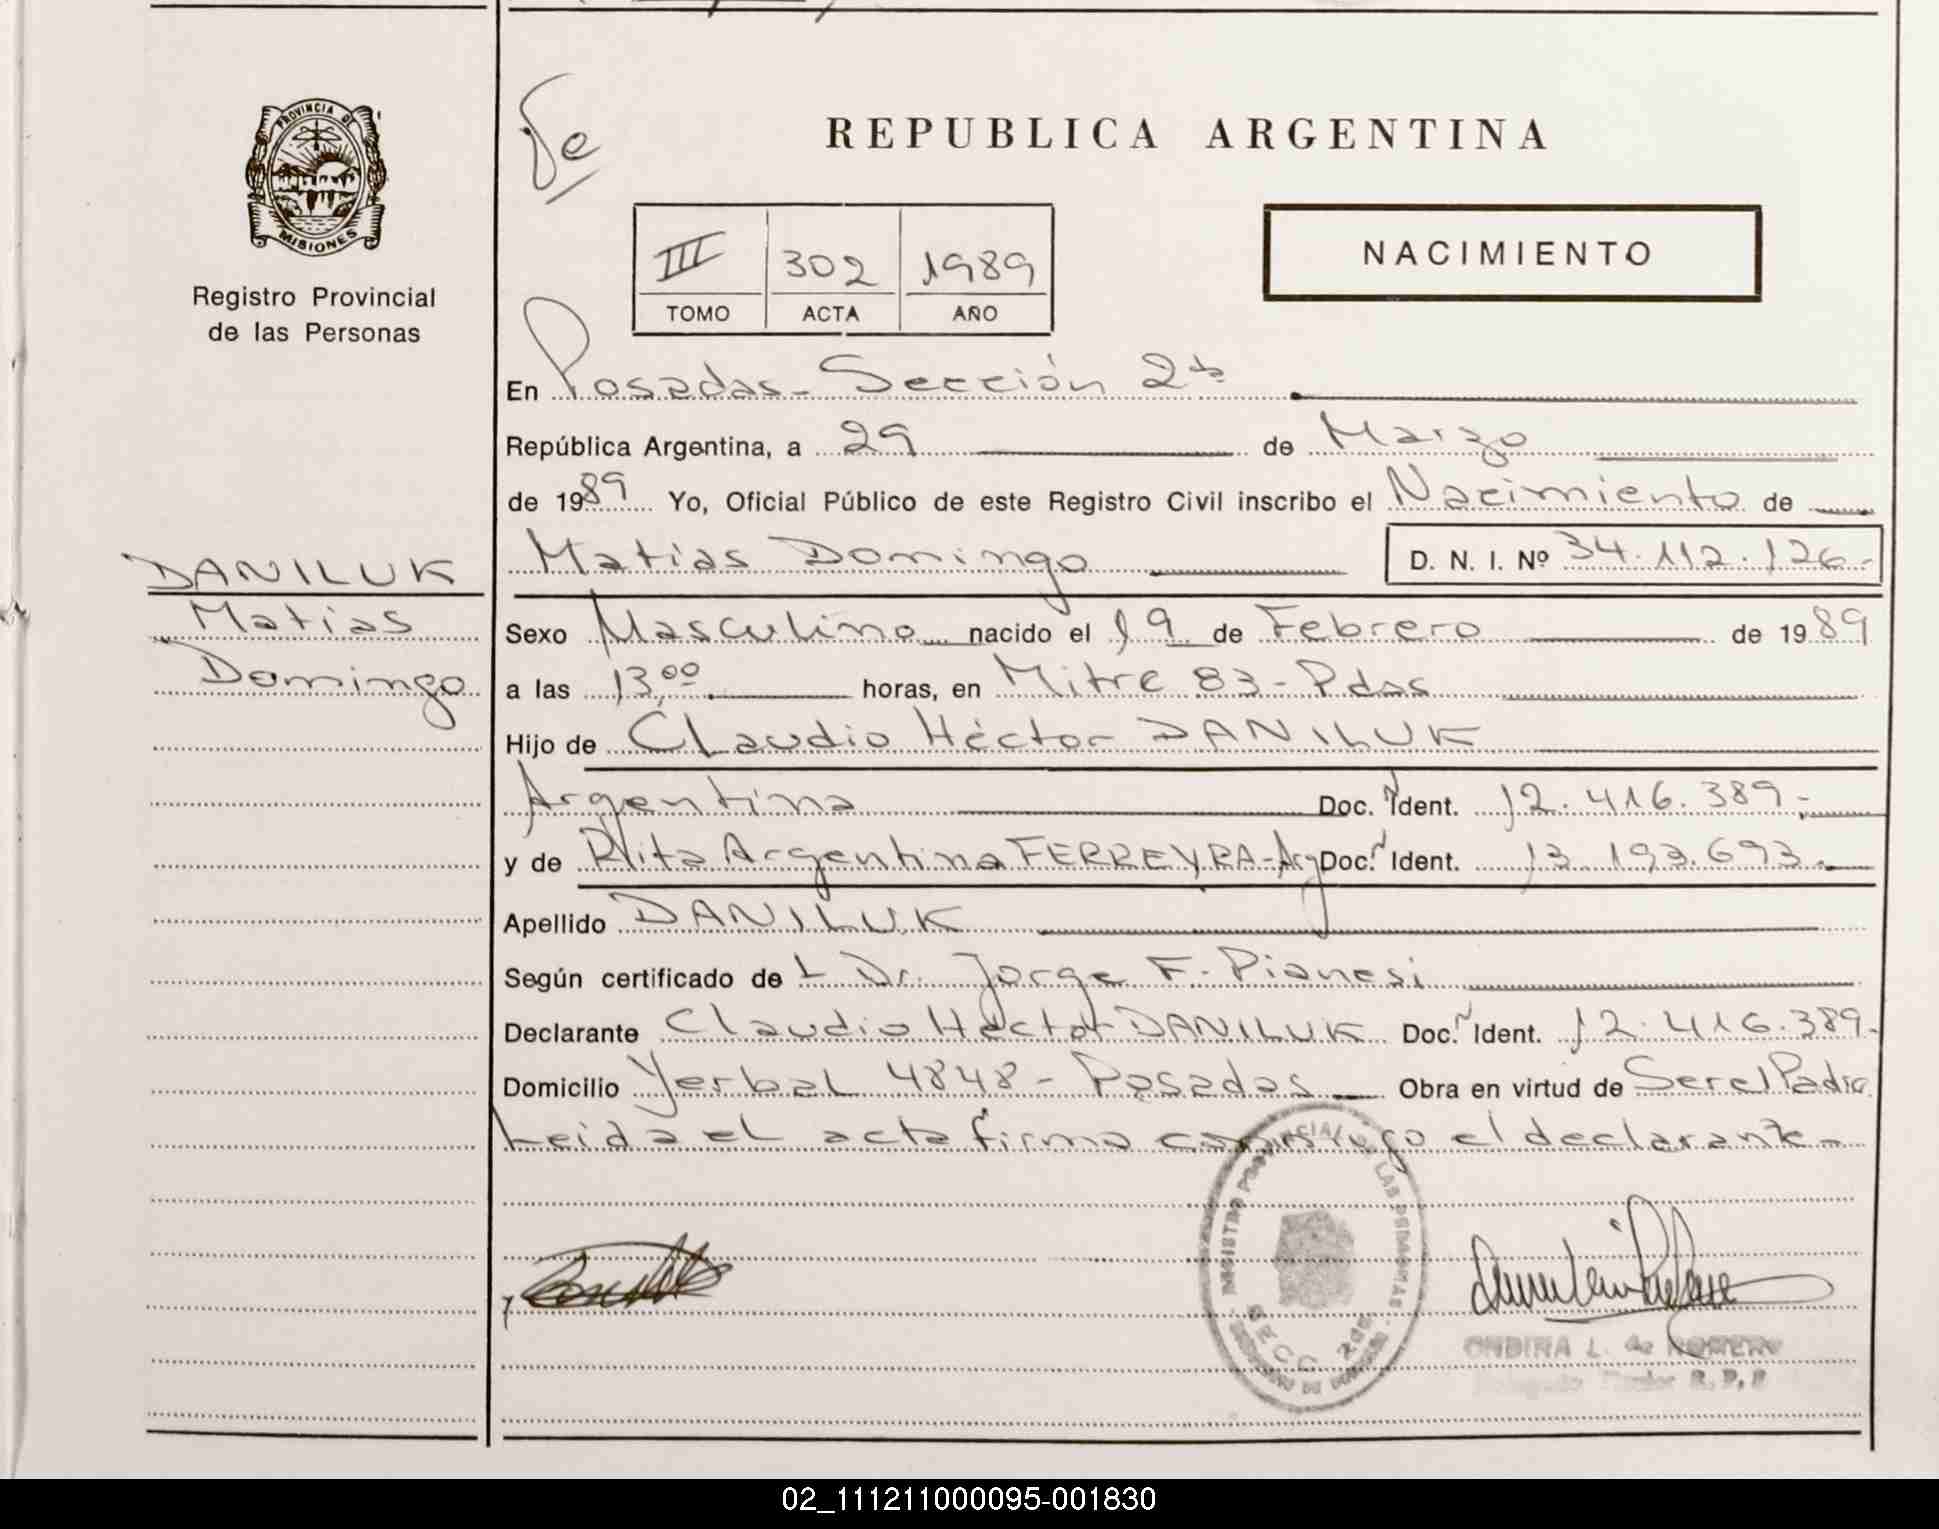 PROVINCIA DE
MISIONES
Registro Provincial
de las Personas
REPUBLICA ARGENTINA
III 302 1989
TOMO ACTA AÑO
NACIMIENTO
En Posadas - Sección 2da
República Argentina, a 29 de Marzo
de 1989 Yo, Oficial Público de este Registro Civil inscribo el Nacimiento de
DANILUK
Matias
Domingo
Matias Domingo D. N. I. Nº 34.112.126.-
Sexo Masculino nacido el 19 de Febrero de 1989
a las 13,00 horas, en Mitre 83 - Pdas
Hijo de Claudio Héctor DANILUK
Argentina Doc. Ident. 12.416.389.-
y de Rita Argentina FERREYRA - Arg Doc. Ident. 13.193.693.-
Apellido DANILUK
Según certificado de L Dr. Jorge F. Pianesi
Declarante Claudio Héctor DANILUK Doc. Ident. 12.416.389.-
Domicilio Yerbal 4848 - Posadas Obra en virtud de Ser el Padre
Leida el acta firma conmigo el declarante -
REGISTRO PROVINCIAL DE LAS PERSONAS
SECC. 2da.
ONDINA L. de ROMERO
02_111211000095-001830